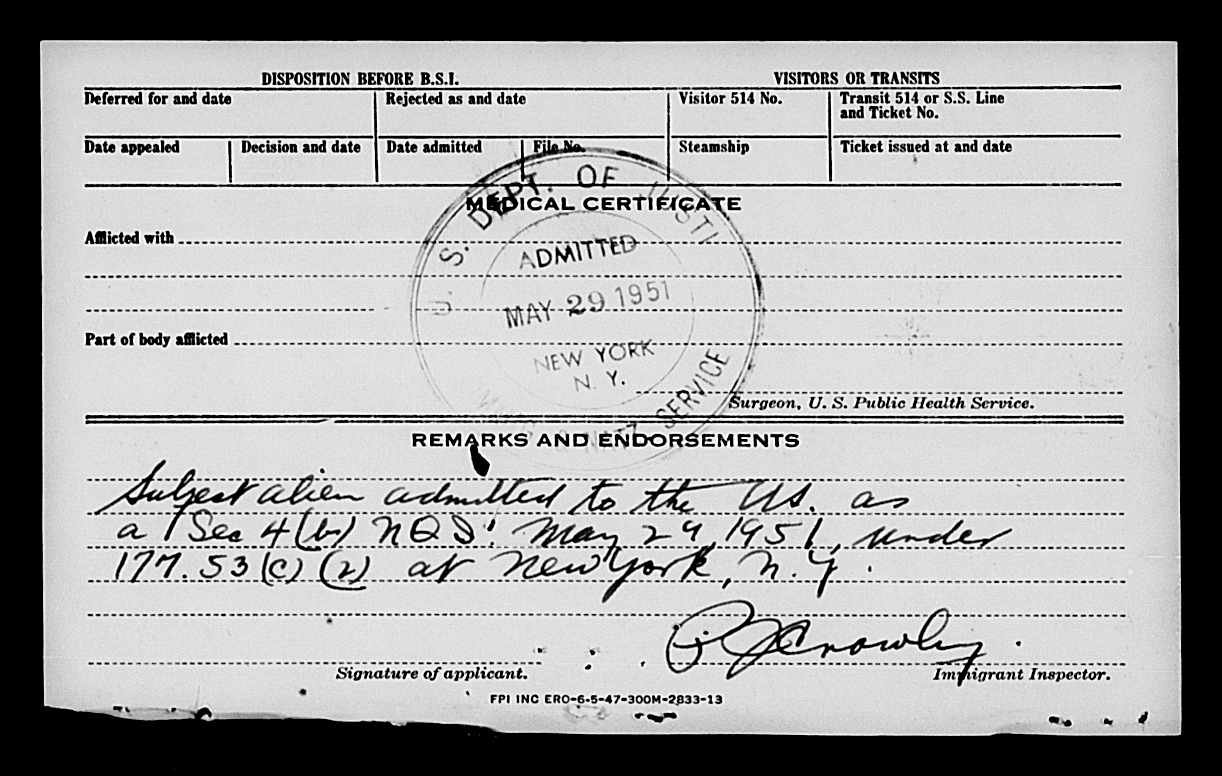 DISPOSITION BEFORE B.S.I.
VISITORS OR TRANSITS
Deferred for and date
Rejected as and date
Visitor 514 No.
Transit 514 or S.S. Line
and Ticket No.
Date appealed
Decision and date
Date admitted
File No.
Steamship
Ticket issued at and date
MEDICAL CERTIFICATE
U. S. DEPT. OF JUSTI
ADMITTED
MAY 29 1951
NEW YORK
N. Y.
& NATZ SERVICE
Afflicted with
Part of body afflicted
Surgeon, U. S. Public Health Service.
REMARKS AND ENDORSEMENTS
Subject alien admitted to the US. as
a Sec 4(b) NQS. May 29, 1951, under
177.53(c)(2) at New York, N.Y.
Crowley
Signature of applicant.
Immigrant Inspector.
FPI INC ERO-6-5-47-300M-2833-13